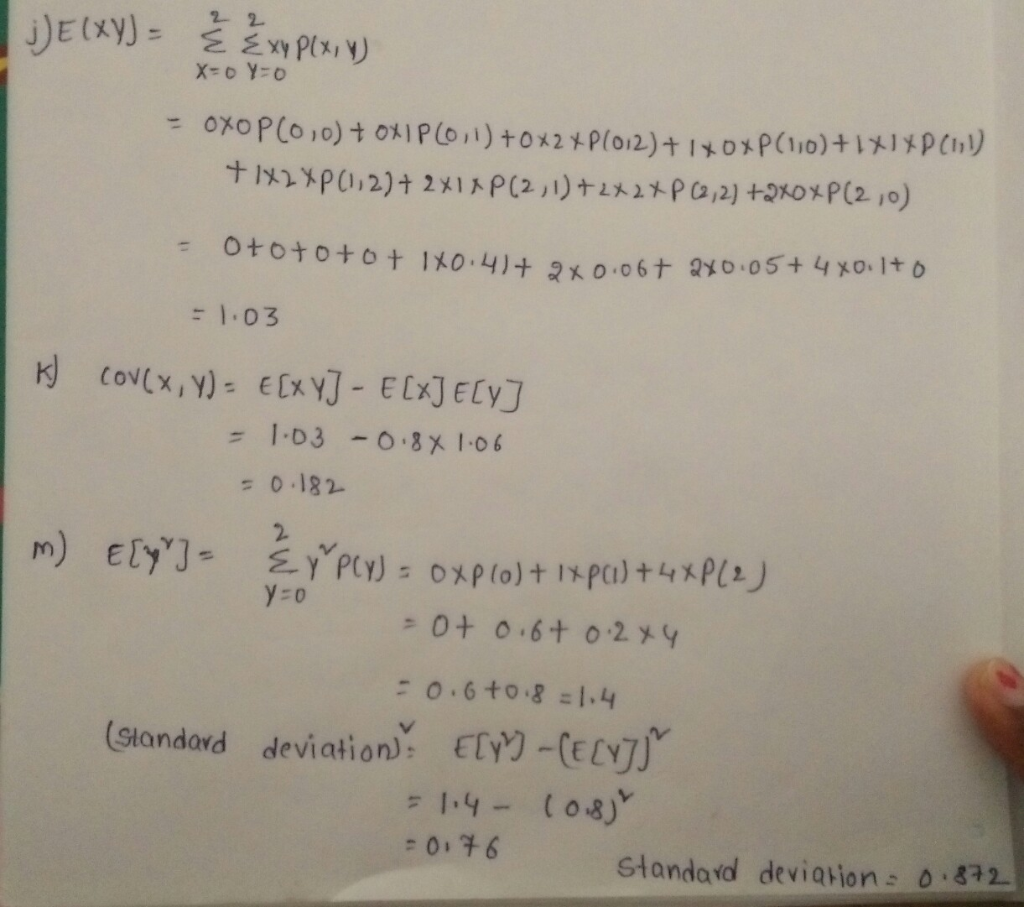 j) E(XY) = Σ Σ xy P(x, y)
2 2
X=0 Y=0
= 0x0P(0,0) + 0x1P(0,1) + 0x2xP(0,2) + 1x0xP(1,0) + 1x1xP(1,1)
+ 1x2xP(1,2) + 2x1xP(2,1) + 2x2xP(2,2) + 2x0xP(2,0)
= 0+0+0+0+ 1x0.41+ 2x0.06+ 2x0.05+ 4x0.1+0
= 1.03
K) cov(x, y) = E[XY] - E[X]E[Y]
= 1.03 - 0.8x 1.06
= 0.182
m) E[y²] = Σ y² P(y) = 0xp(0) + 1xp(1) + 4xP(2)
2
y=0
= 0+ 0.6+ 0.2x4
= 0.6+0.8 = 1.4
(Standard deviation)² = E[y²] - (E[Y])²
= 1.4 - (0.8)²
= 0.76
Standard deviation = 0.872